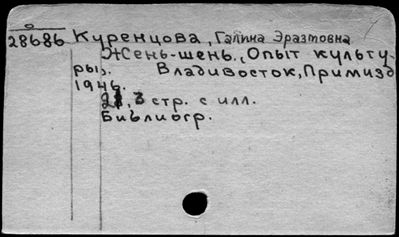 28686 Куренцова, Галина Эразмовна
Жень-шень., Опыт культу-
ры. Владивосток, Примизд
1946.
2, 3 стр. с илл.
Библиогр.